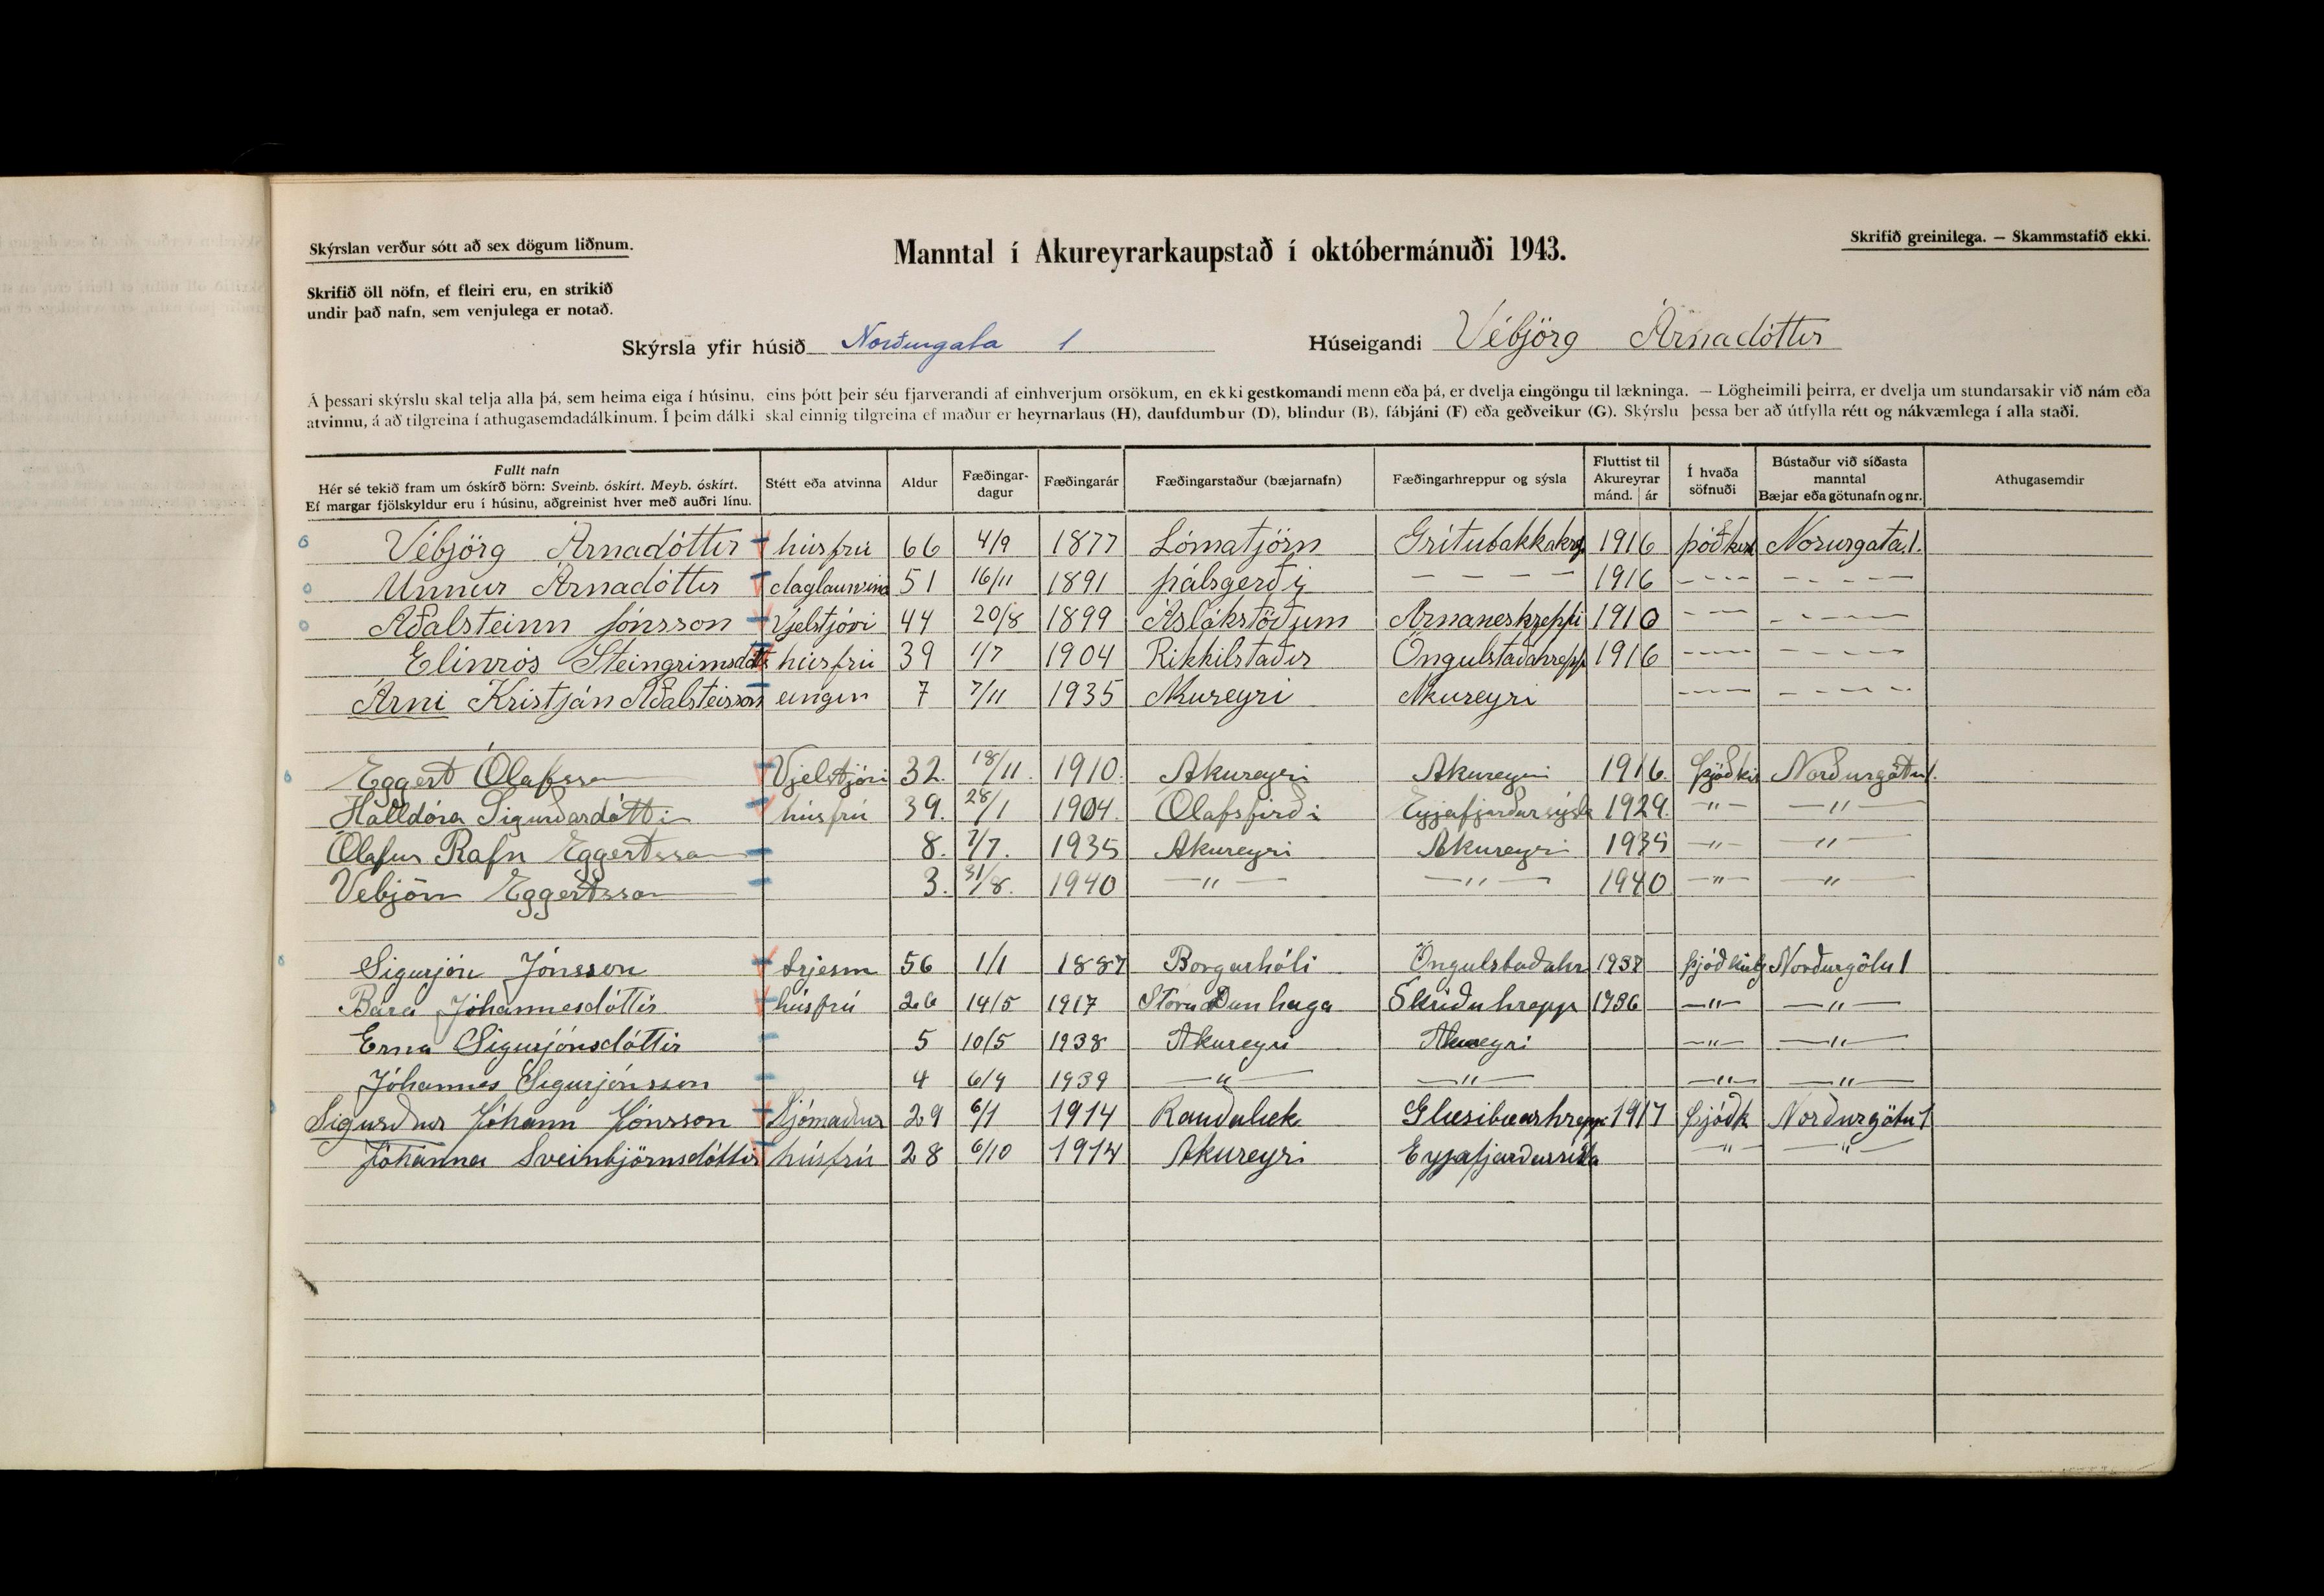 Skýrslan verður sótt að sex dögum liðnum.
Manntal í Akureyrarkaupstað í októbermánuði 1943.
Skrifið greinilega. — Skammstafið ekki.
Skrifið öll nöfn, ef fleiri eru, en strikið
undir það nafn, sem venjulega er notað.
Skýrsla yfir húsið Norðurgata 1 Húseigandi Vébjörg Árnadóttir
Á þessari skýrslu skal telja alla þá, sem heima eiga í húsinu, eins þótt þeir séu fjarverandi af einhverjum orsökum, en ekki gestkomandi menn eða þá, er dvelja eingöngu til lækninga. — Lögheimili þeirra, er dvelja um stundarsakir við nám eða
atvinnu, á að tilgreina í athugasemdadálkinum. Í þeim dálki skal einnig tilgreina ef maður er heyrnarlaus (H), daufdumbur (D), blindur (B), fábjáni (F) eða geðveikur (G). Skýrslu þessa ber að útfylla rétt og nákvæmlega í alla staði.
Fullt nafn
Hér sé tekið fram um óskírð börn: Sveinb. óskírt. Meyb. óskírt.
Ef margar fjölskyldur eru í húsinu, aðgreinist hver með auðri línu.
Stétt eða atvinna
Aldur
Fæðingar-
dagur
Fæðingarár
Fæðingarstaður (bæjarnafn)
Fæðingarhreppur og sýsla
Fluttist til
Akureyrar
mánd. ár
Í hvaða
söfnuði
Bústaður við síðasta
manntal
Bæjar eða götunafn og nr.
Athugasemdir
Vébjörg Árnadóttir húsfrú 66 4/9 1877 Lómatjörn Grítubakkahrp 1916 þóðkirk Norurgata 1.
Unnur Árnadóttir daglaunvina 51 16/11 1891 Pálsgerði - - - - 1916 - - - - - - - -
Aðalsteinn Jónsson Vjelstjóri 44 20/8 1899 Áslákstöðum Arnaneshreppi 1910 - - - - - - -
Elinrós Steingrimsdótt húsfrú 39 1/7 1904 Rikkilstaðir Öngulstaðahrepp 1916 - - - - - - - -
Árni Kristján Aðalsteisson eingin 7 7/11 1935 Akureyri Akureyri - - - - - - - - -
Eggert Ólafsson Vjelstjóri 32. 18/11. 1910. Akureyri Akureyri 1916. Þjóðkir Norðurgötu 1.
Halldóra Sigurðardóttir húsfrú 39. 28/1 1904. Ólafsfirði Eyjafjarðarsýsla 1929. —"— —"—
Ólafur Rafn Eggertsson 8. 7/7. 1935 Akureyri Akureyri 1935 —"— —"—
Vebjörn Eggertsson 3. 31/8. 1940 —"— —"— 1940 —"— —"—
Sigurjón Jónsson trjesm 56 1/1 1887 Borgarhóli Öngulstaðahr 1938 Þjóðkirkj Norðurgötu 1
Bára Jóhannesdóttir húsfrú 26 14/5 1917 Stóra Dunhaga Skriðuhrepp 1936 —"— —"—
Erna Sigurjónsdóttir 5 10/5 1938 Akureyri Akureyri —"— —"—
Jóhannes Sigurjónsson 4 6/9 1939 —"— —"— —"— —"—
Sigurður Jóhann Jónsson Sjómaður 29 6/1 1914 Rauðalæk Glæsibæarhrepp 1917 Þjóðk Norðurgötu 1
Jóhanna Sveinbjörnsdóttir húsfrú 28 6/10 1914 Akureyri Eyjafjarðarsísla " "